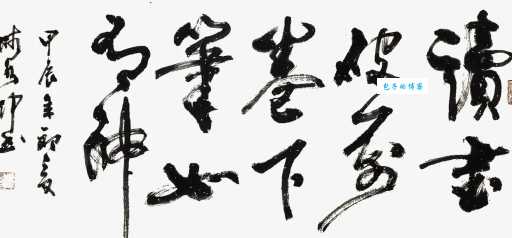 讀書
破萬
卷下
筆如
有神
甲辰年
包子的博客